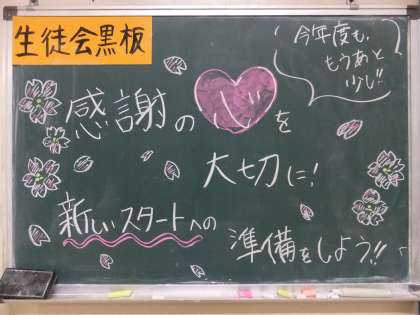 生徒会黒板
今年度も、
もうあと
少し!!
感謝の心を
大切に!
新しいスタートへの
準備をしよう!!